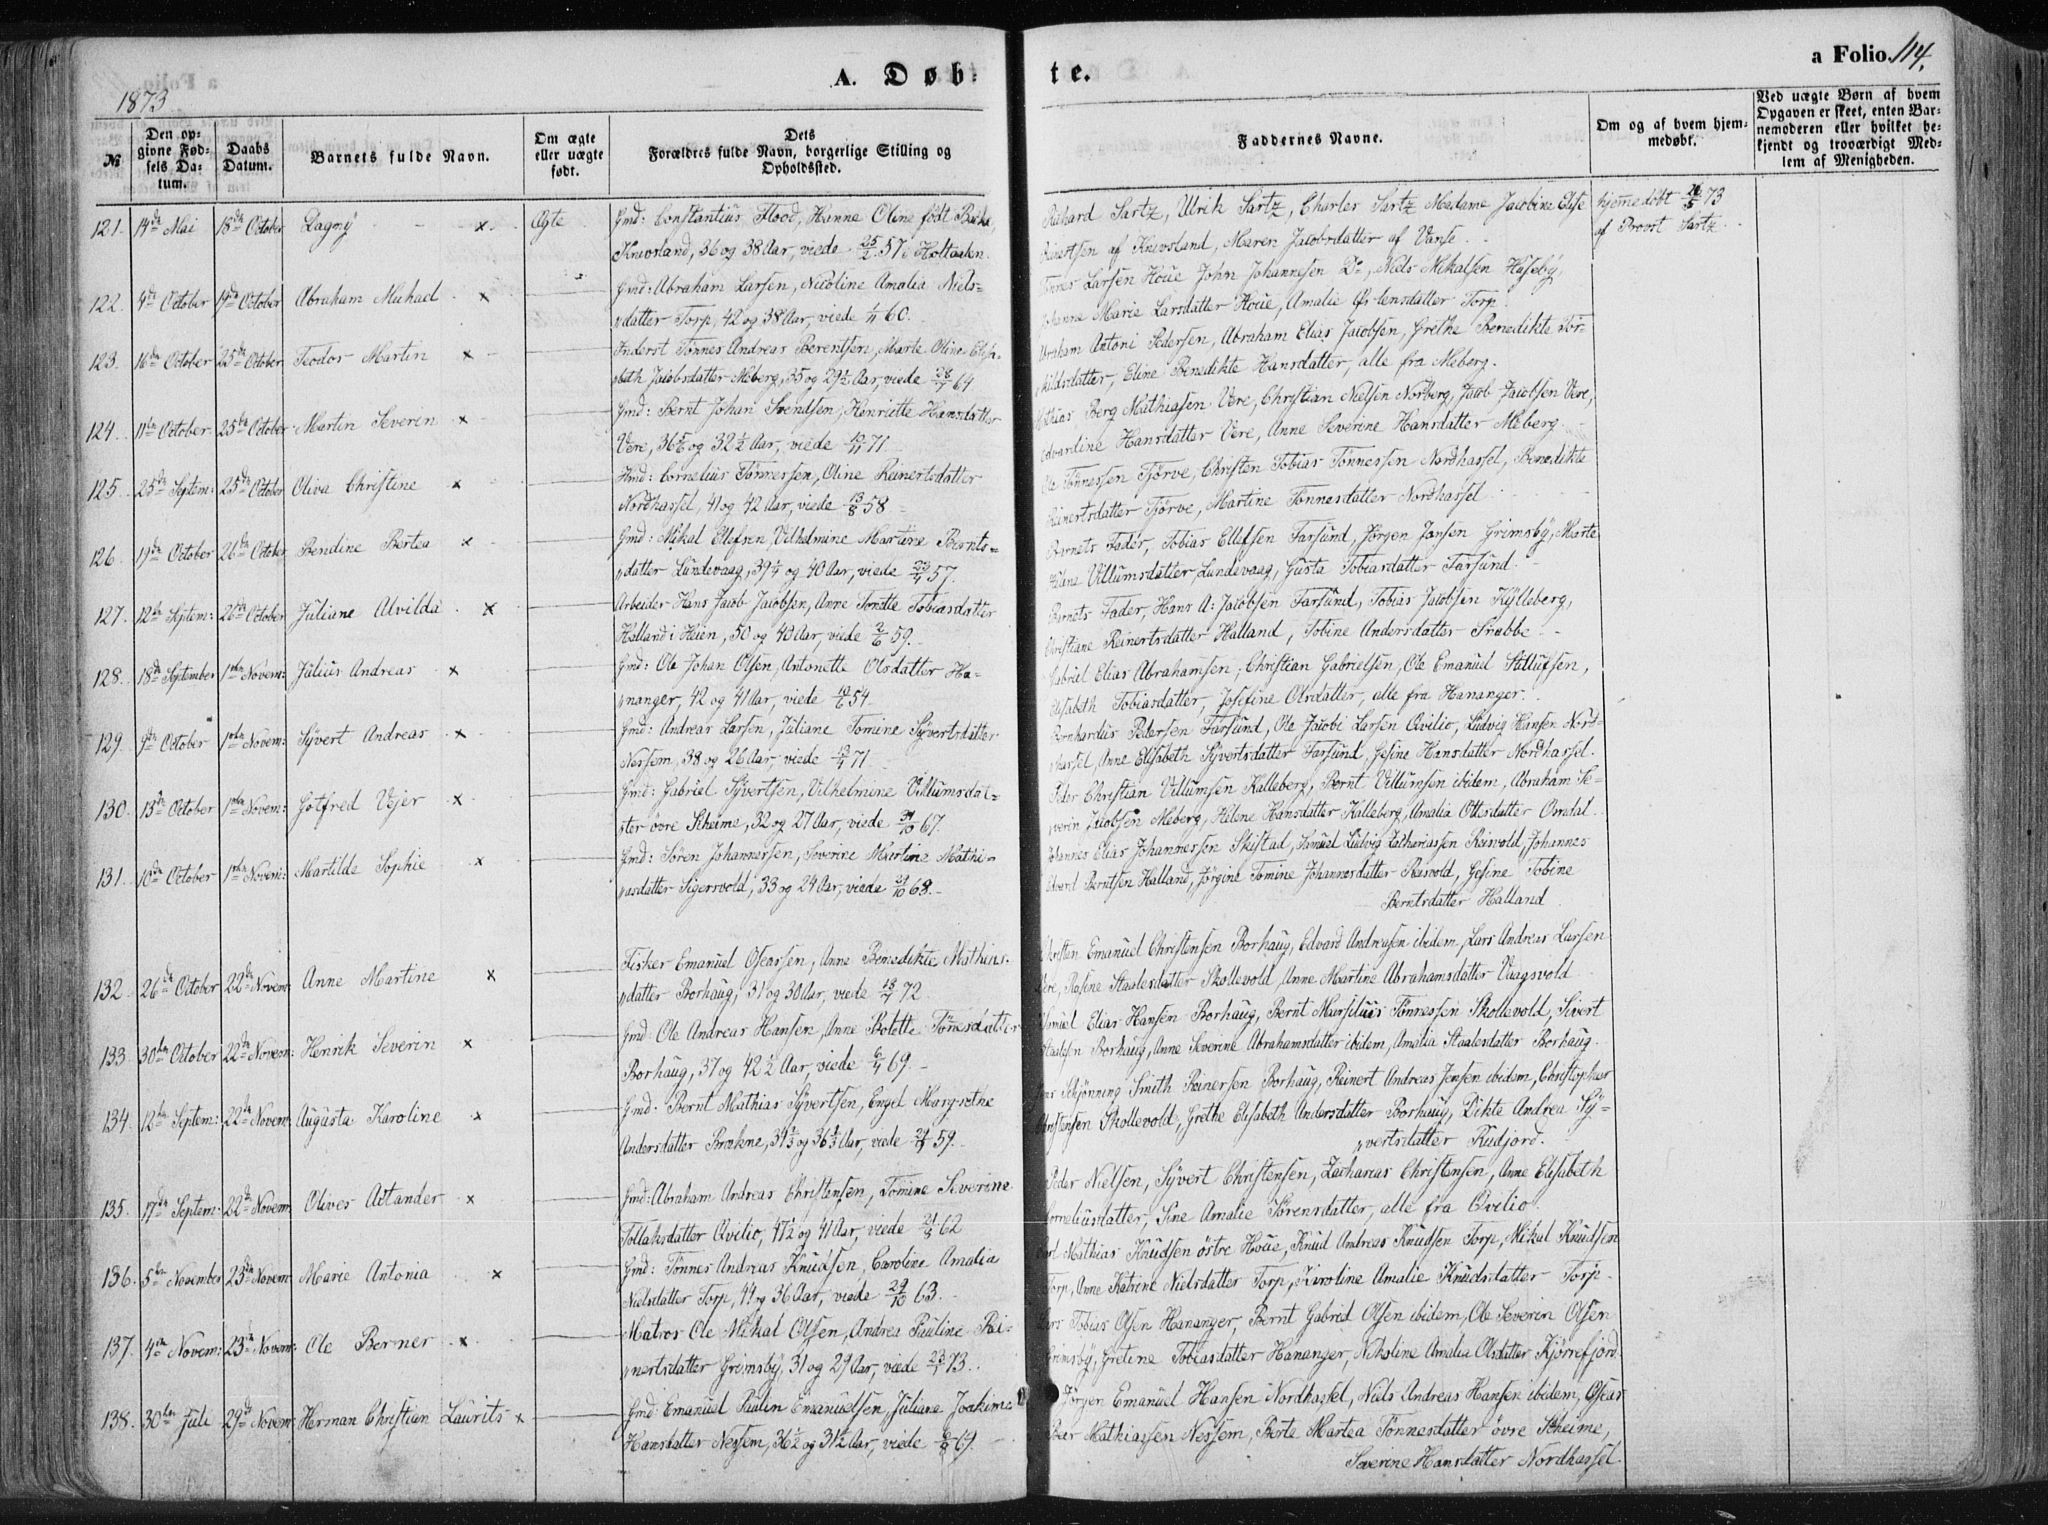 A. Døb-
te.
a Folio 114.
1873
№
Den op-
givne Fød-
sels Da-
tum.
Daabs
Datum.
Barnets fulde Navn.
Om ægte
eller uægte
født.
Dets
Forældres fulde Navn, borgerlige Stilling og
Opholdssted.
Faddernes Navne.
Om og af hvem hjem-
medøbt.
Ved uægte Børn af hvem
Opgaven er skeet, enten Bar-
nemoderen eller hvilket be-
kjendt og troværdigt Med-
lem af Menigheden.
121. 14de Mai 18de October Dagny x Ægte Gmd: Constantius Flood, Hanne Oline født
Knivsland, 36 og 38 Aar, viede 25/2 57 i Holtaalen.
Richard Sartz, Ulrik Sartz, Charles Sartz Madame Jacobine Elise
Reinertsen af Knivsland, Maren Jacobsdatter af Vanse.
hjemmedøbt 26/5 73
af Provst Sartz.
122. 4de October 19de October Abraham Mikael x Gmd: Abraham Larsen, Nicoline Amalia Niels-
datter Torp, 42 og 38 Aar, viede 1/11 60.
Tønnes Larsen Houe John Johannesen Do, Niels Mikalsen Hæseby,
Johanne Marie Larsdatter Houe, Amalie Østensdatter Torp.
123. 16de October 25de October Teodor Martin x Inderst Tønnes Andreas Berentsen, Marte Oline Elisa-
beth Jacobsdatter Meberg, 35 og 29½ Aar, viede 28/7 64
Abraham Antoni Pedersen, Abraham Elias Jacobsen, Grethe Benedikte Tor-
kildsdatter, Eline Benedikte Hansdatter, alle fra Meberg.
124. 11te October 25de October Martin Severin x Gmd: Bernt Johan Svendsen, Henriette Hansdatter
Vere, 36 5/6 og 32½ Aar, viede 71.
Mathias Berg Mathiasen Vere, Christian Nielsen Norberg, Jacob Jacobsen Vere,
Edvardine Hansdatter Vere, Anne Severine Hansdatter Meberg.
125. 25de Septem: 25de October Oliva Christine x Gmd: Cornelius Tønnessen, Oline Reinertsdatter
Nordhassel, 41 og 42 Aar, viede 13/8 58
Ole Tønnessen Tjørve, Christen Tobias Tønnessen Nordhassel, Benedikte
Reinertsdatter Tjørve, Martine Tønnesdatter Nordhassel
126. 19de October 26de October Bendine Bertea x Gmd: Mikal Ellefsen, Vilhelmine Martine Bernts-
datter Lundevaag, 39¼ og 40 Aar, viede 57.
Barnets Fader, Tobias Ellefsen Farsund, Jørgen Jansen Grimsby, Marte
Villumsdatter Lundevaag, Gusta Tobiasdatter Farsund.
127. 12te Septem: 26de October Juliane Alvilda x Arbeider Hans Jacob Jacobsen, Anne Tonette Tobiasdatter
Halland i Heien, 50 og 40 Aar, viede 2/6 59.
Barnets Fader, Hans A: Jacobsen Farsund, Tobias Jacobsen Kylleberg,
Christiane Reinertsdatter Halland, Tobine Andersdatter Snebbe
128. 18de September 1ste Novem: Julius Andreas x Gmd: Ole Johan Olsen, Antonette Olsdatter Ha-
nanger, 42 og 41 Aar, viede 54.
Gabriel Elias Abrahamsen, Christian Gabrielsen, Ole Emanuel Stillufsen,
Elisabeth Tobiasdatter, Josefine Olsdatter, alle fra Hananger.
129. 9de October 1ste Novem: Syvert Andreas x Gmd: Andreas Larsen, Juliane Tomine Syvertsdatter
Nessem, 38 og 26 Aar, viede 71.
Bernhardus Pedersen Farsund, Ole Jacobi Larsen Qvilio, Ludvig Hansen Nord-
hassel, Anne Elisabeth Syvertsdatter Farsund, Gesine Hansdatter Nordhassel.
130. 13de October 1ste Novem: Gotfred Vejer x Gmd: Gabriel Syvertsen, Vilhelmine Villumsdat-
ter øvre Skeime, 32 og 27 Aar, viede 31/10 67.
Peder Christian Villumsen Kalleberg, Bernt Villumsen ibidem, Abraham Se-
verin Jacobsen Meberg, Helene Hansdatter Kalleberg, Amalia Ottesdatter Omdal.
131. 10de October 1ste Novem: Martilde Sophie x Gmd: Søren Johannessen, Severine Martine Mathi-
asdatter Sigersvold, 33 og 24 Aar, viede 29/10 68.
Johannes Elias Johannessen Skeistad, Samuel Ludvig Zachariassen Reisvold, Johannes
Edvard Berntsen Halland, Jørgine Tomine Johannesdatter Resvold, Gesine Tobine
Berntsdatter Halland
132. 26de October 22de Novem: Anne Martine x Fisker Emanuel Osearsen, Anne Benedikte Mathias-
datter Borhaug, 31 og 30 Aar, viede 18/7 72.
Torsten Emanuel Christensen Borhaug, Edvard Andreasen ibidem, Lars Andreas Larsen
Vere, Rosine Staalesdatter Skollevold, Anne Martine Abrahamsdatter Vaagsvold
133. 30te October 22de Novem: Henrik Severin x Gmd Ole Andreas Hansen, Anne Bolette Tønnesdatter
Borhaug, 37 og 42½ Aar, viede 69.
Samuel Elias Hansen Borhaug, Bernt Marselius Tønnessen Skollevold, Sivert
Staalesen Borhaug, Anne Severine Abrahamsdatter ibidem, Amalia Staalesdatter Borhaug.
134. 12te Septem: 22de Novem: Augusta Karoline x Gmd. Bernt Mathias Syvertsen, Engel Margrethe
Andersdatter Brekne, 39⅓ og 36⅓ Aar, viede 59.
Schjønning Smith Reinersen Borhaug, Reinert Andreas Jensen ibidem, Christopher
Christensen Skollevold, Grethe Elisabeth Andersdatter Borhaug, Dikte Andrea Sy-
vertsdatter Rudjord.
135. 17de Septem: 22de Novem: Olives Adtander x Gmd: Abraham Andreas Christensen, Tomine Severine
Tollaksdatter Qvilio, 47½ og 41 Aar, viede 62
Peder Nielsen, Syvert Christensen, Zacharias Christensen, Anne Elisabeth
Corneliusdatter, Sine Amalie Sørensdatter, alle fra Qvilio.
136. 5te November 23de Novem: Marie Antonia x Gmd: Tønnes Andreas Knudsen, Caroline Amalia
Nielsdatter Torp, 44 og 36 Aar, viede 29/10 63.
Mathias Knudsen østre Houe, Knud Andreas Knudsen Torp, Mikal Knudsen
Torp, Anne Katrine Nielsdatter Torp, Karoline Amalie Knudsdatter Torp.
137. 4de Novem: 23de Novem: Ole Berner x Matros Ole Mikal Olsen, Andrea Pauline Rei-
nertsdatter Grimsby, 31 og 29 Aar, viede 23/1 73.
Lars Tobias Olsen Hananger, Bernt Gabriel Olsen ibidem, Ole Severin Olsen
Grimsby, Gretine Tobiasdatter Hananger, Nikoline Amalia Olsdatter Kjørrefjord.
138. 30te Juli 29de Novem: Herman Christian Laurits x Gmd: Emanuel Paulin Emanuelsen, Juliane Joakime
Hansdatter Nessem, 36½ og 31½ Aar, viede 69.
Jørgen Emanuel Hansen Nordhassel, Niels Andreas Hansen ibidem, Osear
Mathiassen Nessem, Berte Martea Tønnesdatter øvre Skeime,
Severine Hansdatter Nordhassel.